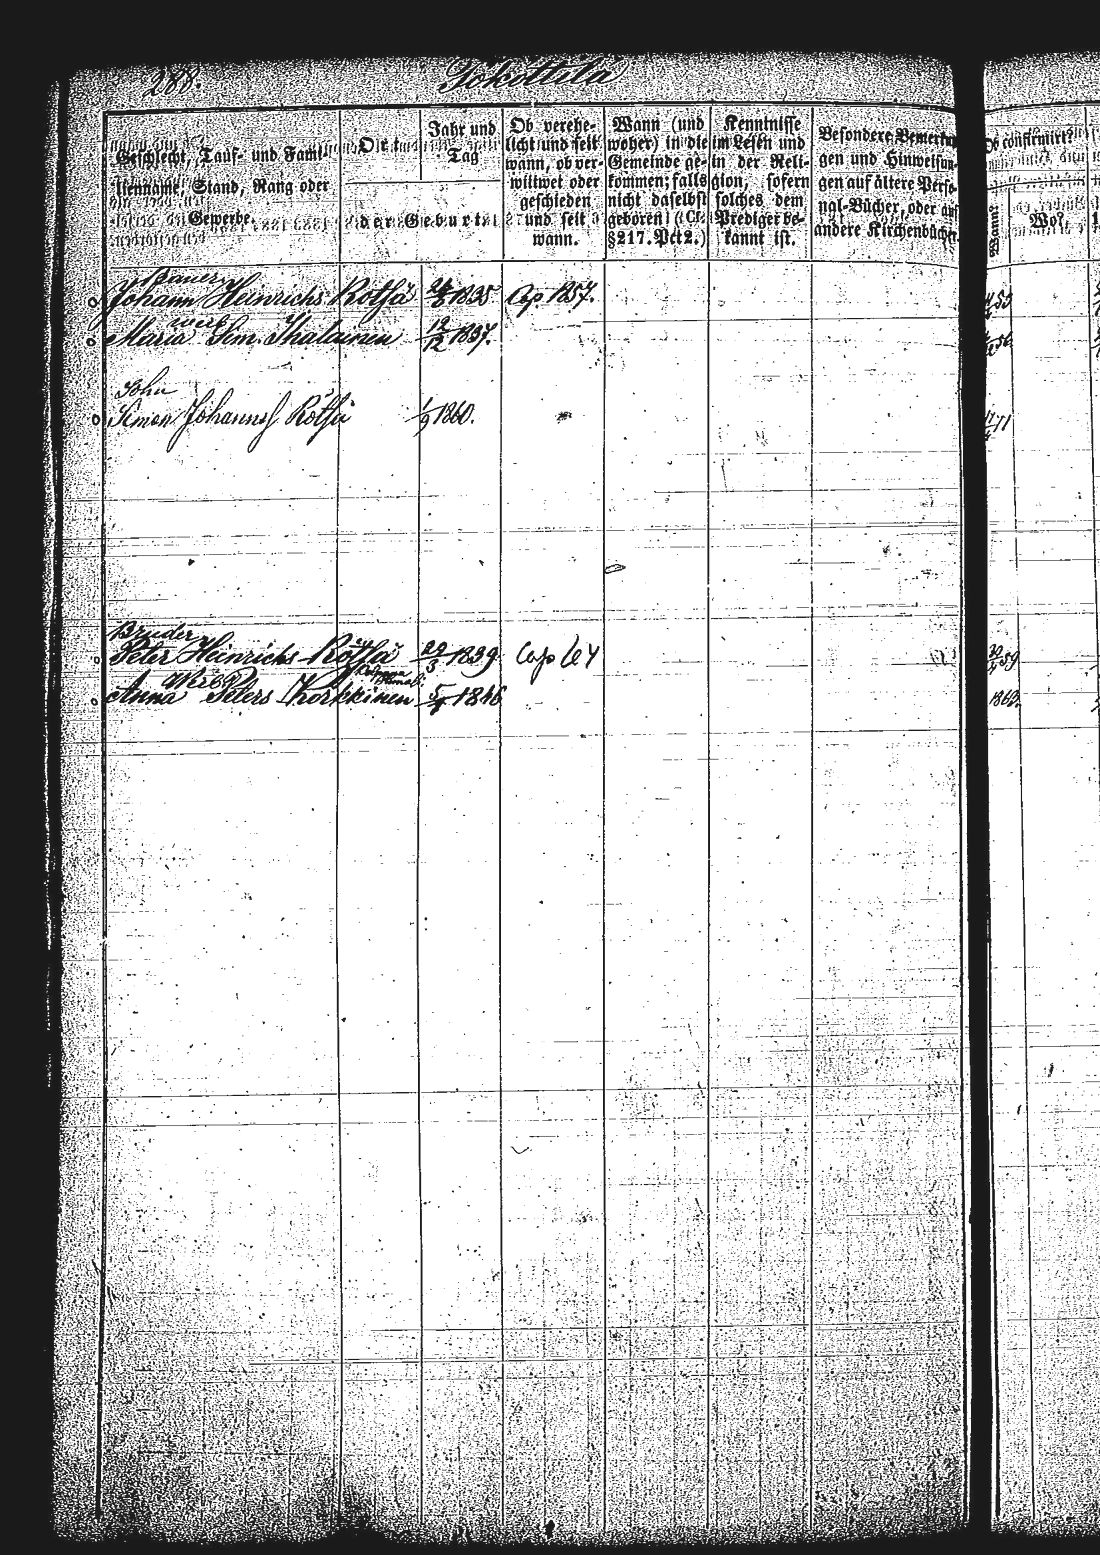 288.
Geschlecht, Tauf- und Fami-
lienname, Stand, Rang oder
Gewerbe.
Ort
Jahr und
Tag
der Geburt.
Ob verehe-
licht und seit
wann, ob ver-
wittwet oder
geschieden
und seit
wann.
Wann (und
woher) in die
Gemeinde ge-
kommen; falls
nicht daselbst
geboren
§217. Pct 2.)
Kenntnisse
im Lesen und
in der Reli-
gion, sofern
solches dem
Prediger be-
kannt ist.
Besondere
gen und Hinweisun-
gen auf ältere Perso-
nal-Bücher, oder auf
andere Kirchenbücher.
Ob confirmirt?
Wann?
Wo?
Bauer
Johann Heinrichs Rötsä 1835 Cop. 1857.
Weib
Maria Sim. Ihalainen 12/12 1837.
Sohn
Simon Johanns Rötsä 1/9 1860.
71
Bruder
Peter Heinrichs Rötsä 29/3 1839 Cop 64
59
Weib
Anna Peters Korkkinen 1846
1863.